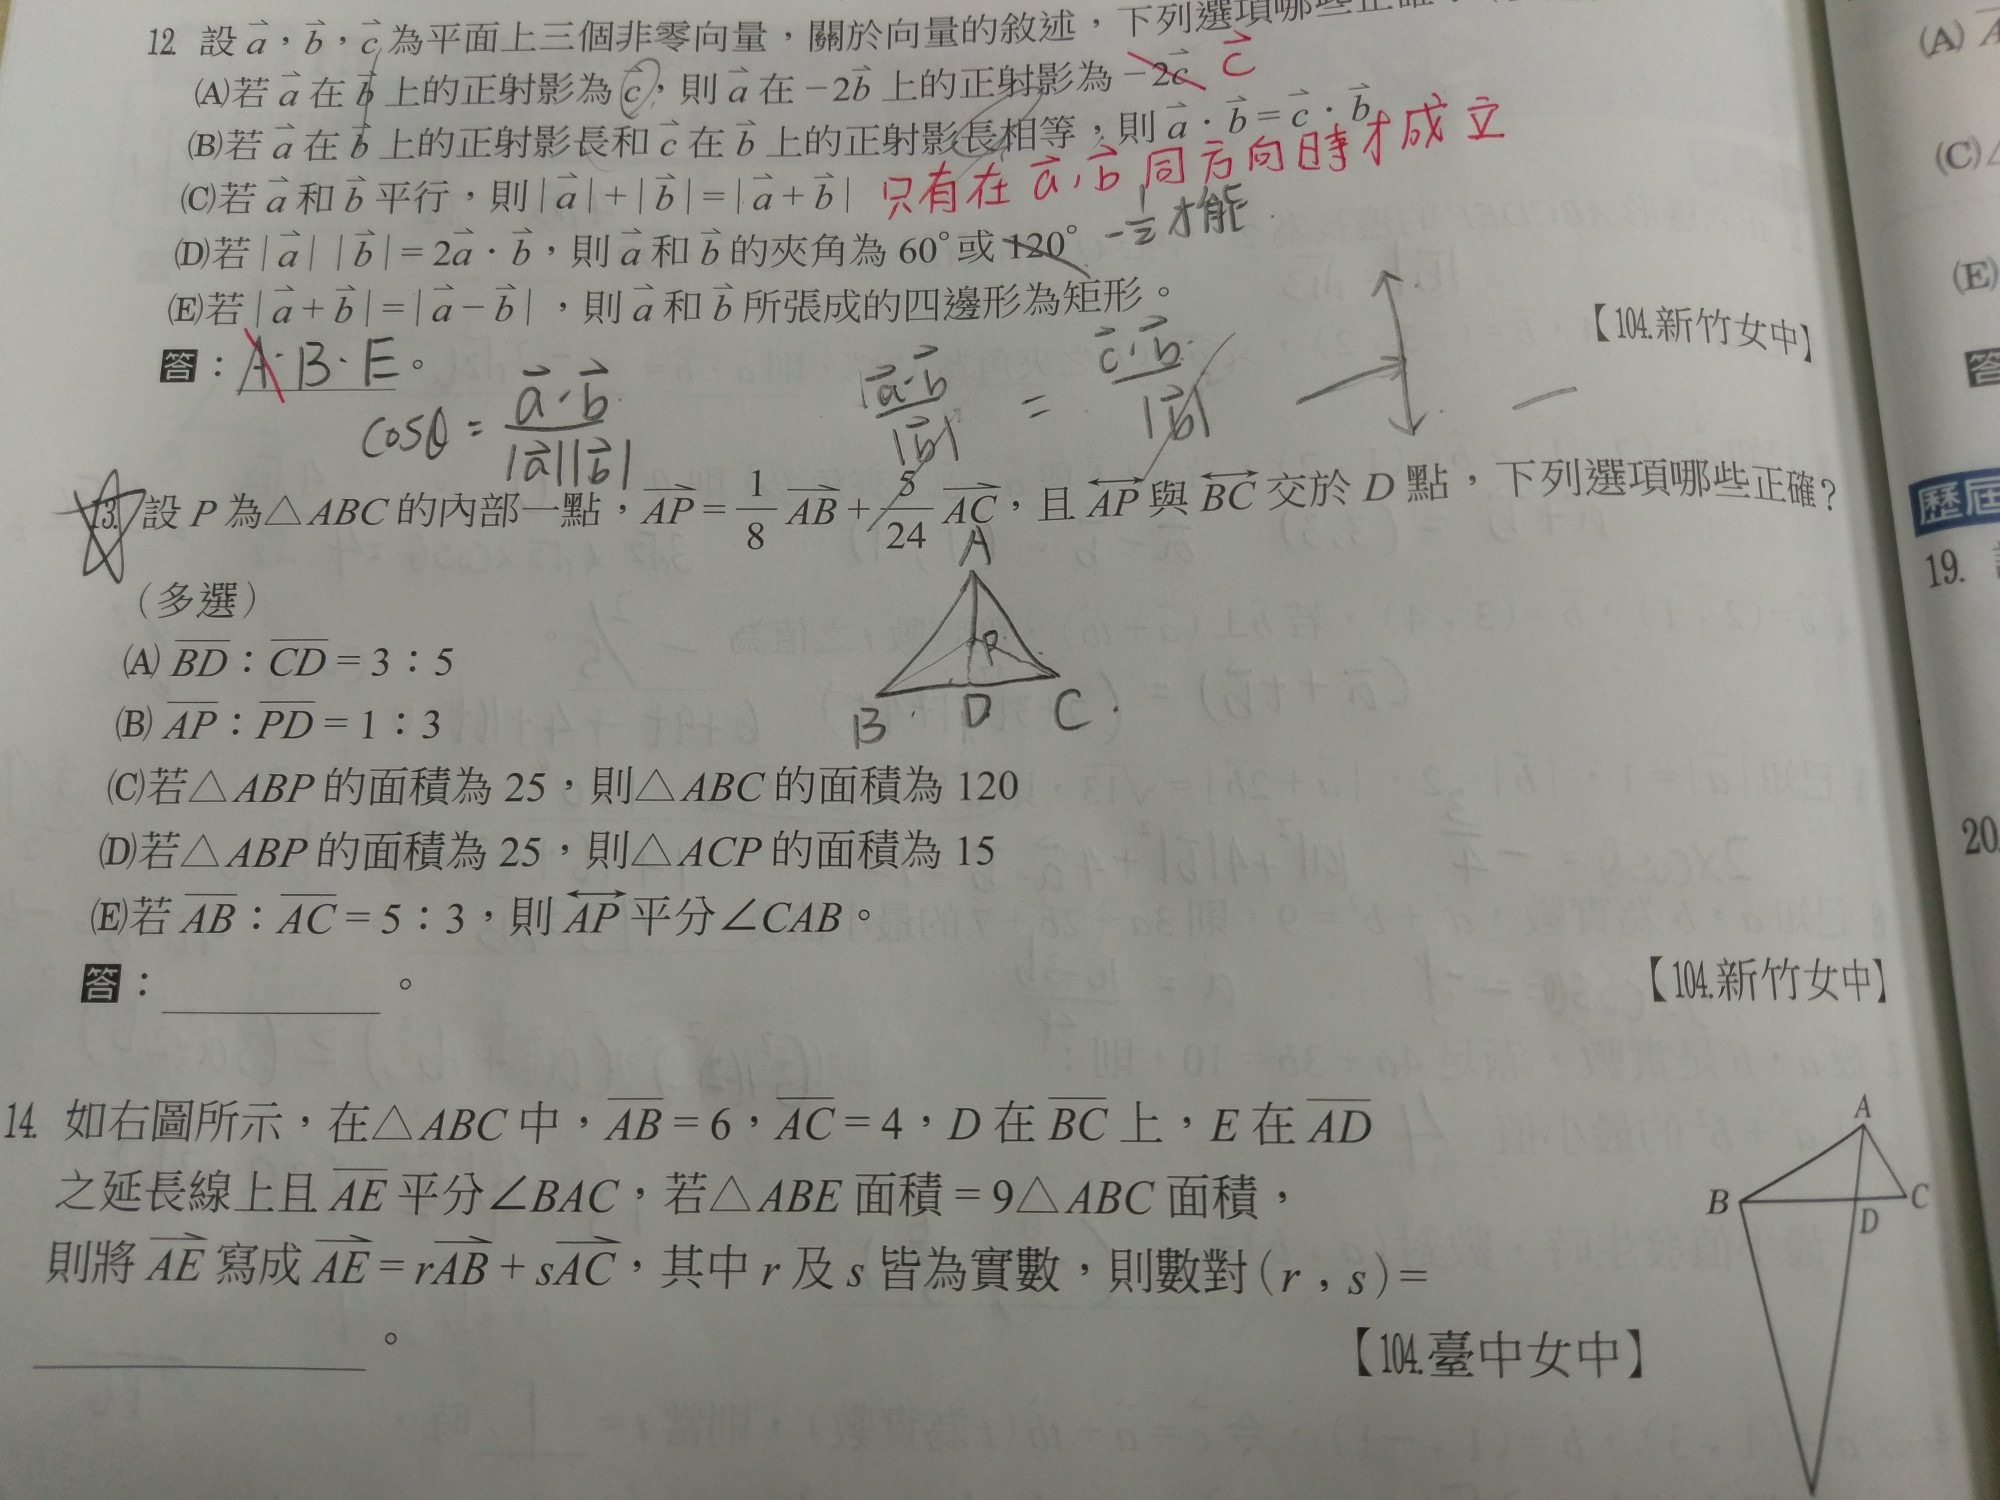 12. 設 a⃗，b⃗，c⃗ 為平面上三個非零向量，關於向量的敘述，下列選項哪些正確
(A)若 a⃗ 在 b⃗ 上的正射影為 c⃗，則 a⃗ 在 −2b⃗ 上的正射影為 −2c⃗ c⃗
(B)若 a⃗ 在 b⃗ 上的正射影長和 c⃗ 在 b⃗ 上的正射影長相等，則 a⃗．b⃗ = c⃗．b⃗
(C)若 a⃗ 和 b⃗ 平行，則 |a⃗| + |b⃗| = |a⃗ + b⃗| 只有在 a⃗, b⃗ 同方向時才成立
(D)若 |a⃗| |b⃗| = 2a⃗．b⃗，則 a⃗ 和 b⃗ 的夾角為 60°或 120° -1/2 才能
(E)若 |a⃗ + b⃗| = |a⃗ − b⃗|，則 a⃗ 和 b⃗ 所張成的四邊形為矩形。
【104.新竹女中】
答：A．B．E。
cosθ = a⃗．b⃗ / |a⃗||b⃗|
|a⃗．b⃗ / |b⃗| = c⃗．b⃗ / |b⃗|
13. 設 P 為△ABC 的內部一點，AP⃗ = 1/8 AB⃗ + 5/24 AC⃗，且 AP⃡ 與 BC⃡ 交於 D 點，下列選項哪些正確？
（多選）
(A) B̅D̅：C̅D̅ = 3：5
(B) A̅P̅：P̅D̅ = 1：3
(C)若△ABP 的面積為 25，則△ABC 的面積為 120
(D)若△ABP 的面積為 25，則△ACP 的面積為 15
(E)若 A̅B̅：A̅C̅ = 5：3，則 AP⃡ 平分∠CAB。
A
P
B D C
答：。
【104.新竹女中】
14. 如右圖所示，在△ABC 中，A̅B̅ = 6，A̅C̅ = 4，D 在 B̅C̅ 上，E 在 A̅D̅
之延長線上且 A̅E̅ 平分∠BAC，若△ABE 面積 = 9△ABC 面積，
則將 AE⃗ 寫成 AE⃗ = rAB⃗ + sAC⃗，其中 r 及 s 皆為實數，則數對 (r , s) =
。
【104.臺中女中】
A
B
C
D
(A)
(C)
(E)
答
歷屆
19.
20.